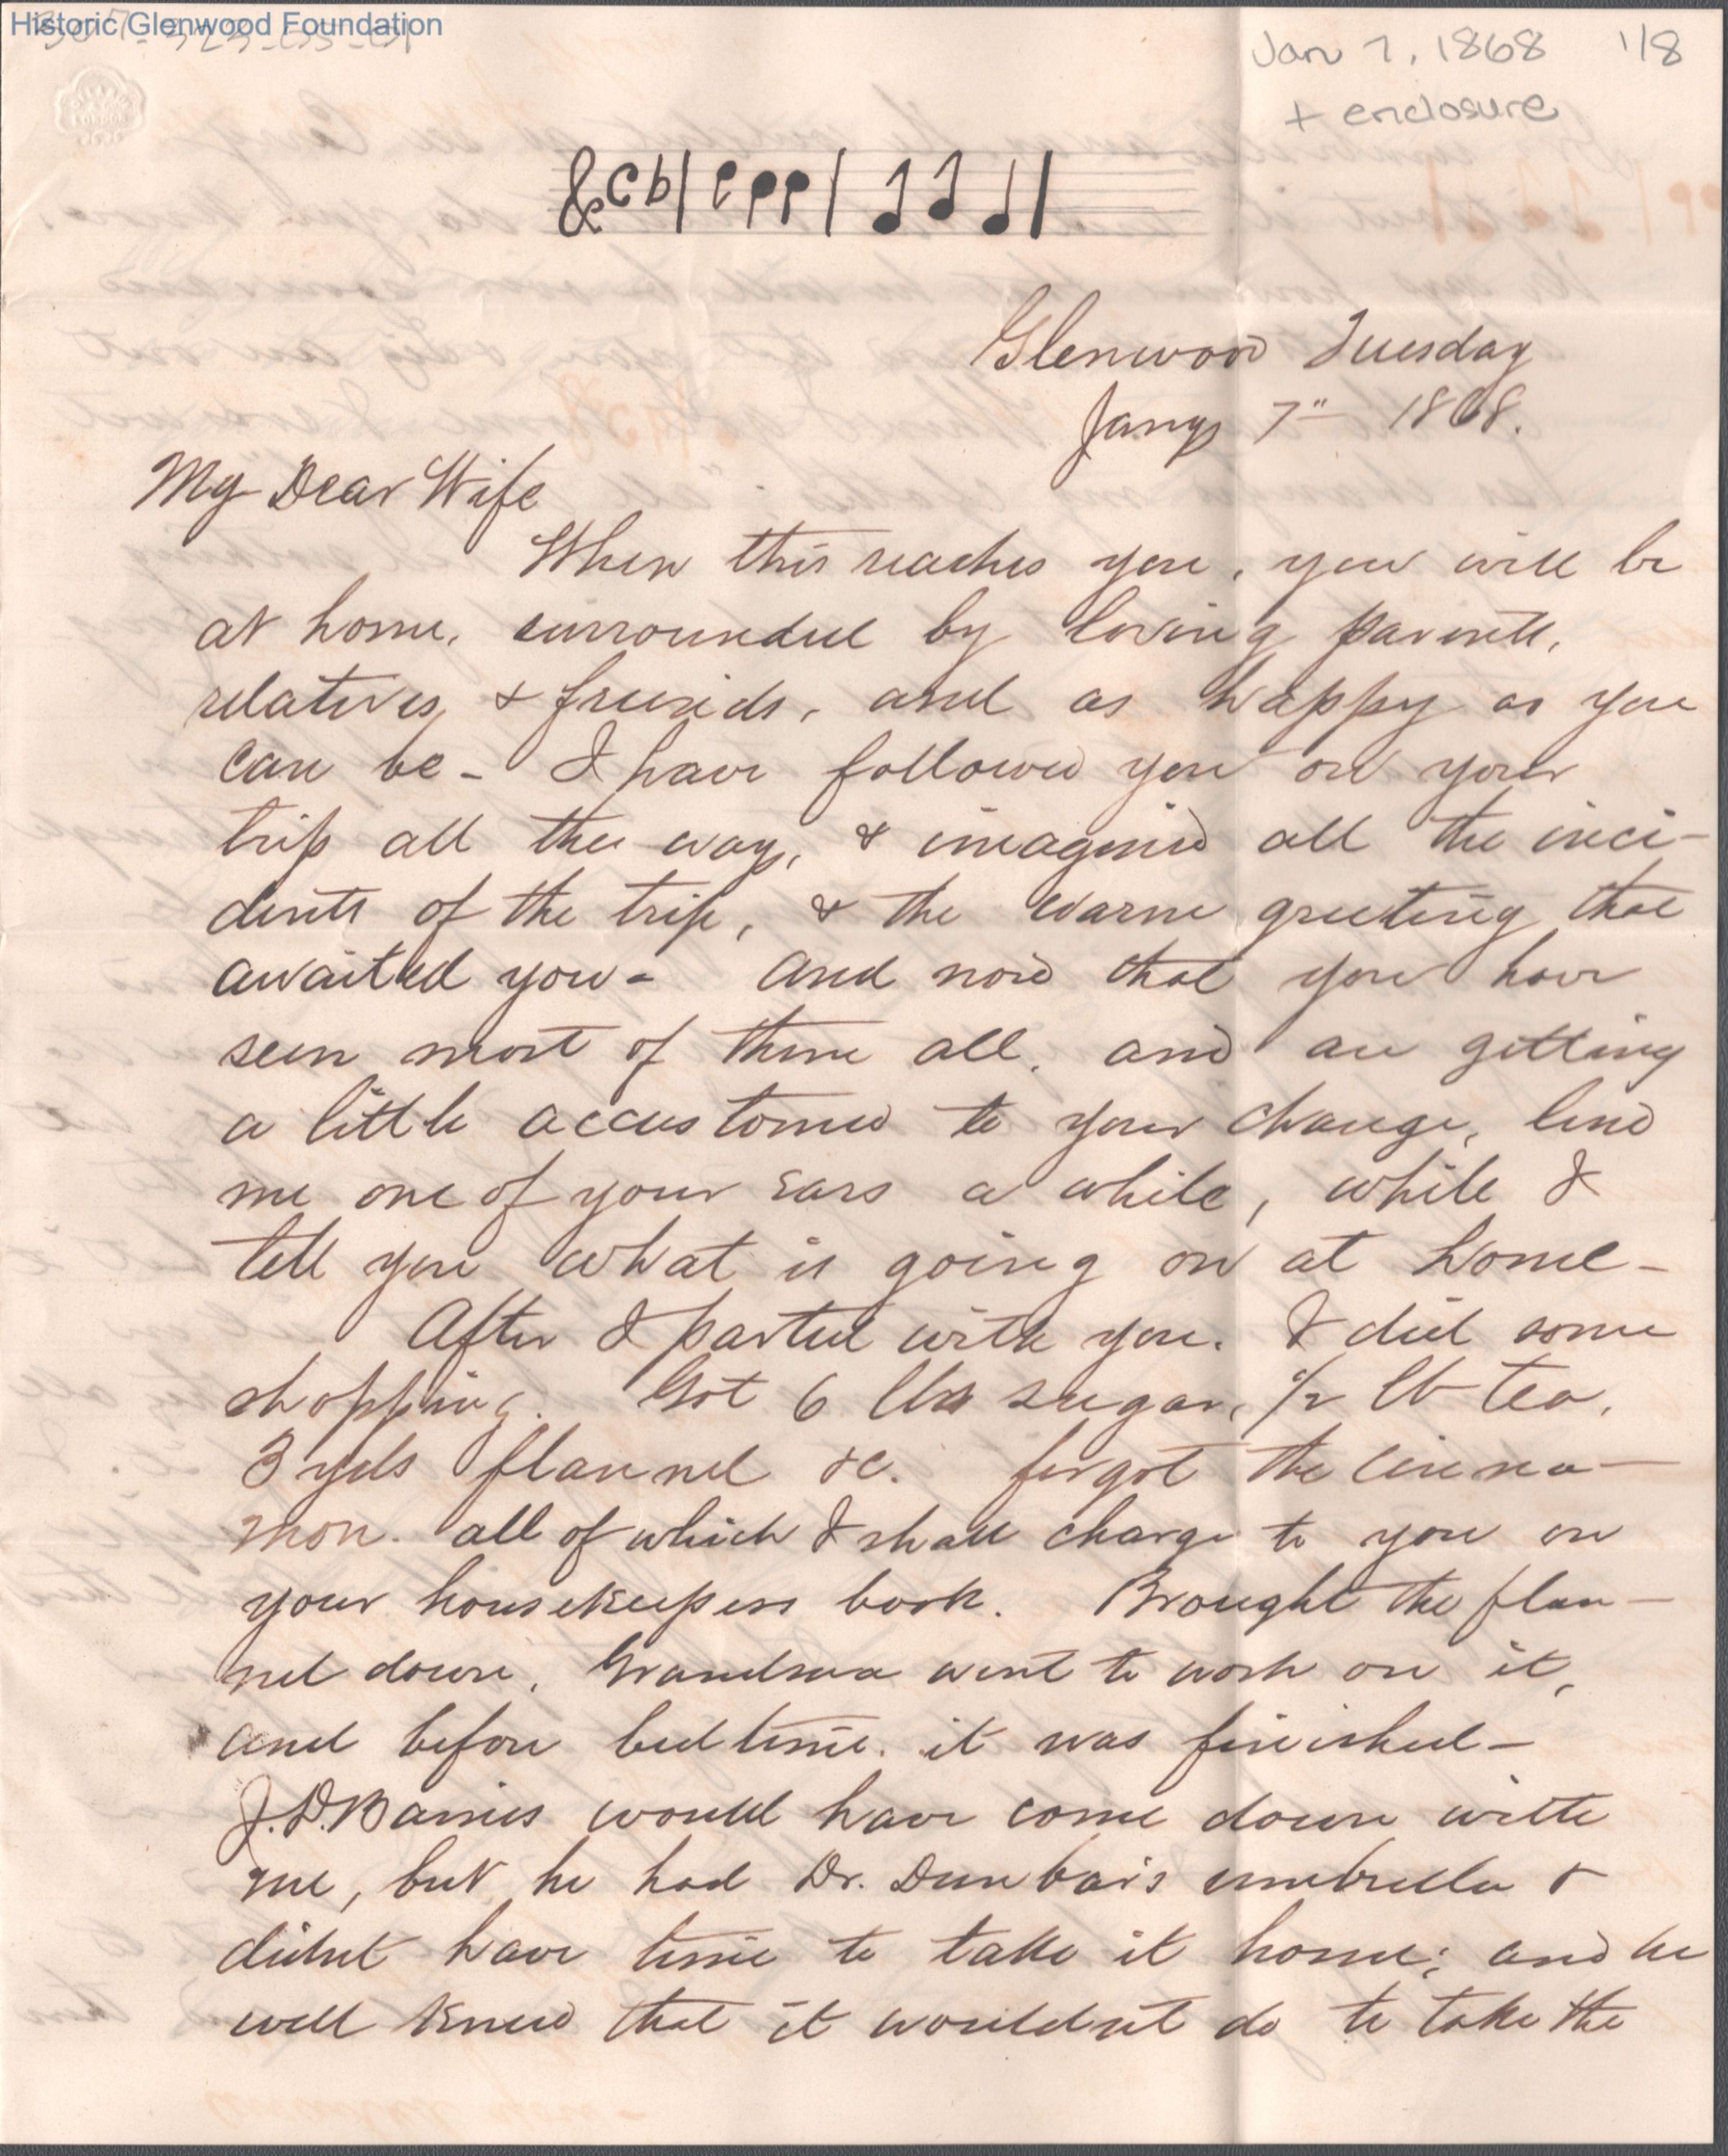 Historic Glenwood Foundation
Jan 7, 1868 1/8
+ enclosure
Glenwood Tuesday
Jany 7" 1868.
My Dear Wife
When this reaches you, you will be
at home, surrounded by loving parents,
relatives, & friends, and as happy as you
can be - I have followed you on your
trip all the way, & imagined all the inci-
dents of the trip, & the warm greeting that
awaited you - And now that you have
seen most of them all, and are getting
a little accustomed to your change, lend
me one of your ears a while, while I
tell you what is going on at home -
After I parted with you. I did some
shopping. Got 6 lbs sugar, 1/2 lb tea,
3 yds flannel &c. forgot the cinna-
mon. all of which I shall charge to you on
your housekeepers book. Brought the flan-
nel down, Grandma went to work on it,
and before bedtime it was finished -
J.D. Barnes would have come down with
me, but he had Dr. Dunbar's umbrella &
didnt have time to take it home; and he
well knew that it wouldnt do to take the